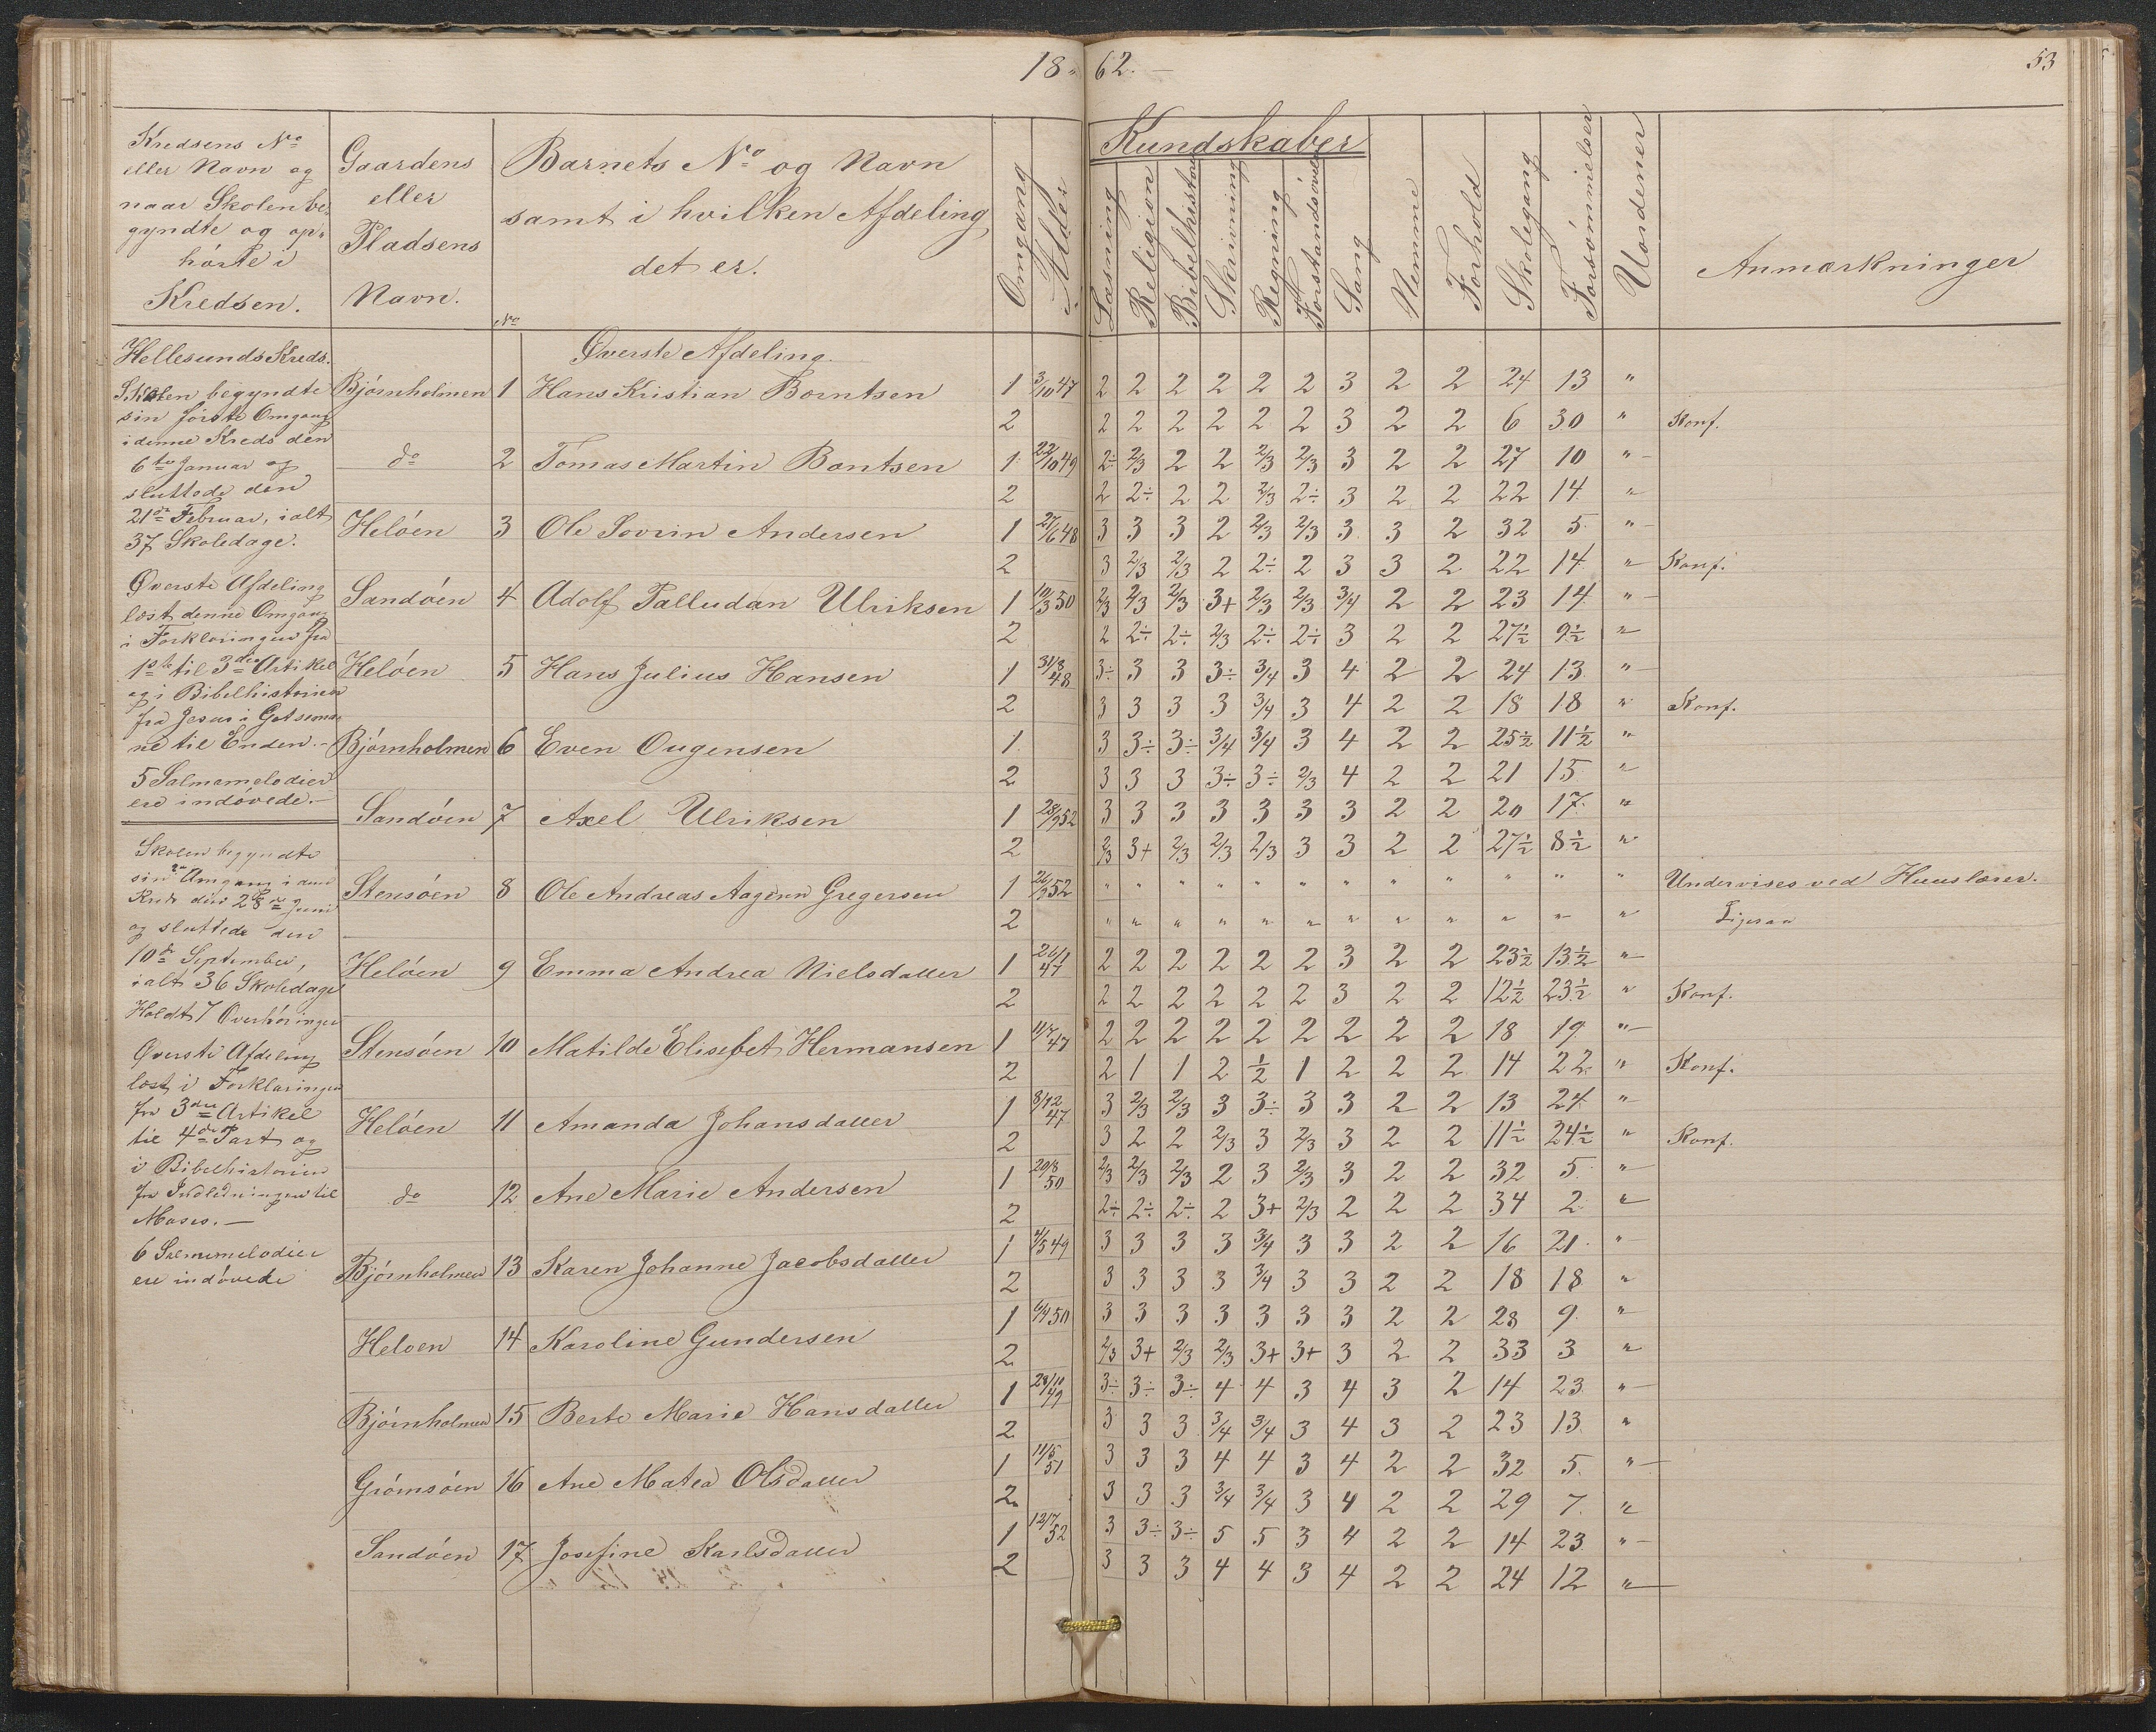 18 62. 53
Kredsens No eller Navn og naar Skolen begyndte og ophörte i Kredsen.
Gaardens eller Pladsens Navn.
Barnets No og Navn samt i hvilken Afdeling det er.
Omgang
Alder
Kundskaber
Læsning
Religion
Bibelhistorie
Skrivning
Regning
Forstandsövelse
Sang
Nemme
Forhold
Skolegang
Forsömmielser
Uordener
Anmærkninger
No
Hellesunds Kreds.
Skolen begyndte
sin förste Omgang
i denne Kreds den
6te Januar og
sluttede den
21de Februar, ialt
37 Skoledage.
Överste Afdeling
læst denne Omgang
i Forklaringen fra
1ste til 3die Artikel
og i Bibelhistorien
fra Jesus i Getsemane
til Enden.
5 Salmemelodier
ere indövede.
Skolen begyndte
sin 2den Omgang i denne
Kreds den 28de Juni
og sluttede den
10de September,
ialt 36 Skoledage
Holdt 7 Overhöringer
Överste Afdeling
læst i Forklaringen
fra 3die Artikel
til 4de Part og
i Bibelhistorien
fra Indledningen til
Moses. —
6 Salmemelodier
ere indövede
Överste Afdeling.
Bjørnholmen 1 Hans Kristian Borntsen 1 3/10 47 2 2 2 2 2 2 3 2 2 24 13 "
2 2 2 2 2 2 2 3 2 2 6 30 " Konf.
do 2 Tomas Martin Bontsen 1 22/10 49 2÷ 2/3 2 2 2/3 2/3 3 2 2 27 10 "
2 2 2÷ 2 2 2/3 2÷ 3 2 2 22 14 "
Helöen 3 Ole Sovrin Andersen 1 27/6 48 3 3 3 2 2/3 2/3 3 3 2 32 5 "
2 3 2/3 2/3 2 2÷ 2 3 3 2 22 14 " Konf.
Sandöen 4 Adolf Palludan Ulriksen 1 10/3 50 2/3 2/3 2/3 3+ 2/3 2/3 3/4 2 2 23 14 "
2 2 2÷ 2÷ 2/3 2÷ 2÷ 3 2 2 27½ 9½ "
Helöen 5 Hans Julius Hansen 1 31/8 48 3÷ 3 3 3÷ 3/4 3 4 2 2 24 13 "
2 3 3 3 3 3/4 3 4 2 2 18 18 " Konf.
Bjørnholmen 6 Even Ougensen 1 3 3÷ 3÷ 3/4 3/4 3 4 2 2 25½ 11½ "
2 3 3 3 3÷ 3÷ 2/3 4 2 2 21 15 "
Sandöen 7 Axel Ulriksen 1 28/9 52 3 3 3 3 3 3 3 2 2 20 17 "
2 2/3 3+ 2/3 2/3 2/3 3 3 2 2 27½ 8½ "
Stensöen 8 Ole Andreas Aagenn Gregersen 1 26/9 52 " " " " " " " " " " " " Undervises ved Huuslærer.
2 " " " " " " " " " " " " Ligesaa
Helöen 9 Emma Andrea Nielsdatter 1 26/1 47 2 2 2 2 2 2 3 2 2 23½ 13½ "
2 2 2 2 2 2 2 3 2 2 12½ 23½ " Konf.
Stensöen 10 Matilde Elisebet Hermansen 1 11/7 47 2 2 2 2 2 2 2 2 2 18 19 "
2 2 1 1 2 ½ 1 2 2 2 14 22 " Konf.
Helöen 11 Amanda Johansdatter 1 8/12 47 3 2/3 2/3 3 3÷ 3 3 2 2 13 24 "
2 3 2 2 2/3 3 2/3 3 2 2 11½ 24½ " Konf.
do 12 Ane Marie Andersen 1 20/8 50 2/3 2/3 2/3 2 3 2/3 3 2 2 32 5 "
2 2÷ 2÷ 2÷ 2 3+ 2/3 2 2 2 34 2 "
Bjørnholmen 13 Karen Johanne Jacobsdatter 1 2/5 49 3 3 3 3 3/4 3 3 2 2 16 21 "
2 3 3 3 3 3/4 3 3 2 2 18 18 "
Heloen 14 Karoline Gundersen 1 6/4 50 3 3 3 3 3 3 3 2 2 28 9 "
2 2/3 3+ 2/3 2/3 3+ 3+ 3 2 2 33 3 "
Bjørnholmen 15 Berte Marie Hansdatter 1 28/10 49 3÷ 3÷ 3÷ 4 4 3 4 3 2 14 23 "
2 3 3 3 3/4 3/4 3 4 3 2 23 13 "
Grömsöen 16 Ane Matea Olsdatter 1 11/5 51 3 3 3 4 4 3 4 2 2 32 5 "
2 3 3 3 3/4 3/4 3 4 2 2 29 7 "
Sandöen 17 Josefine Karlsdatter 1 12/7 52 3 3÷ 3÷ 5 5 3 4 2 2 14 23 "
2 3 3 3 4 4 3 4 2 2 24 12 "